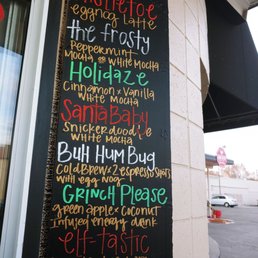 mistletoe
eggnog latte
the frosty
Peppermint
mocha or white mocha
Holidaze
Cinnamon x Vanilla
white mocha
Santa Baby
Snickerdoodle
white mocha
Bull Hum Bug
Cold Brew x 2 espresso shots
with egg nog
Grinch Please
green apple x coconut
infused energy drink
elf-tastic